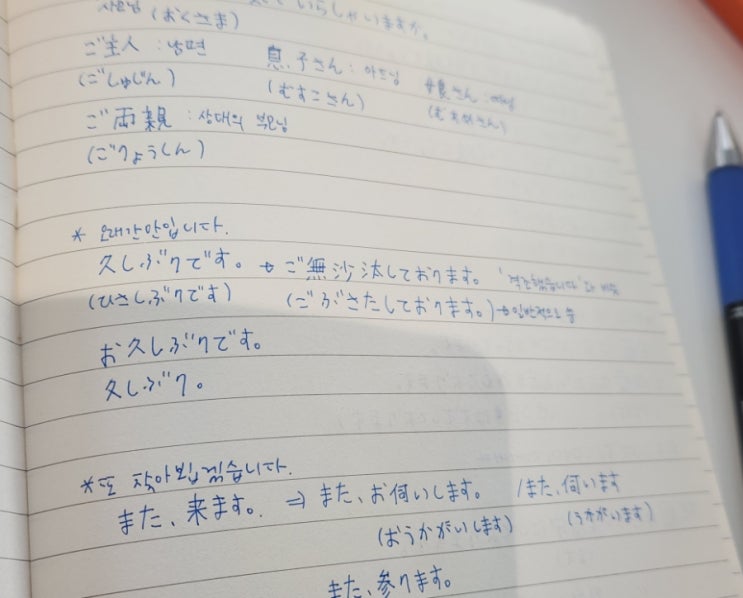 いらしゃいますか。
사모님 (おくさま)
ご主人 : 남편 息子さん : 아드님 娘さん : 따님
(ごしゅじん) (むすこさん) (むすめさん)
ご両親 : 상대의 부모님
(ごりょうしん)
* 오래간만입니다.
久しぶりです。 → ご無沙汰しております。
(ひさしぶりです) (ごぶさたしております。) → 일반적으로 씀
お久しぶりです。
久しぶり。
*또 찾아뵙겠습니다.
また、来ます。 ⇒ また、お伺いします。 / また、伺います
(おうかがいします) (うかがいます)
また、参ります。